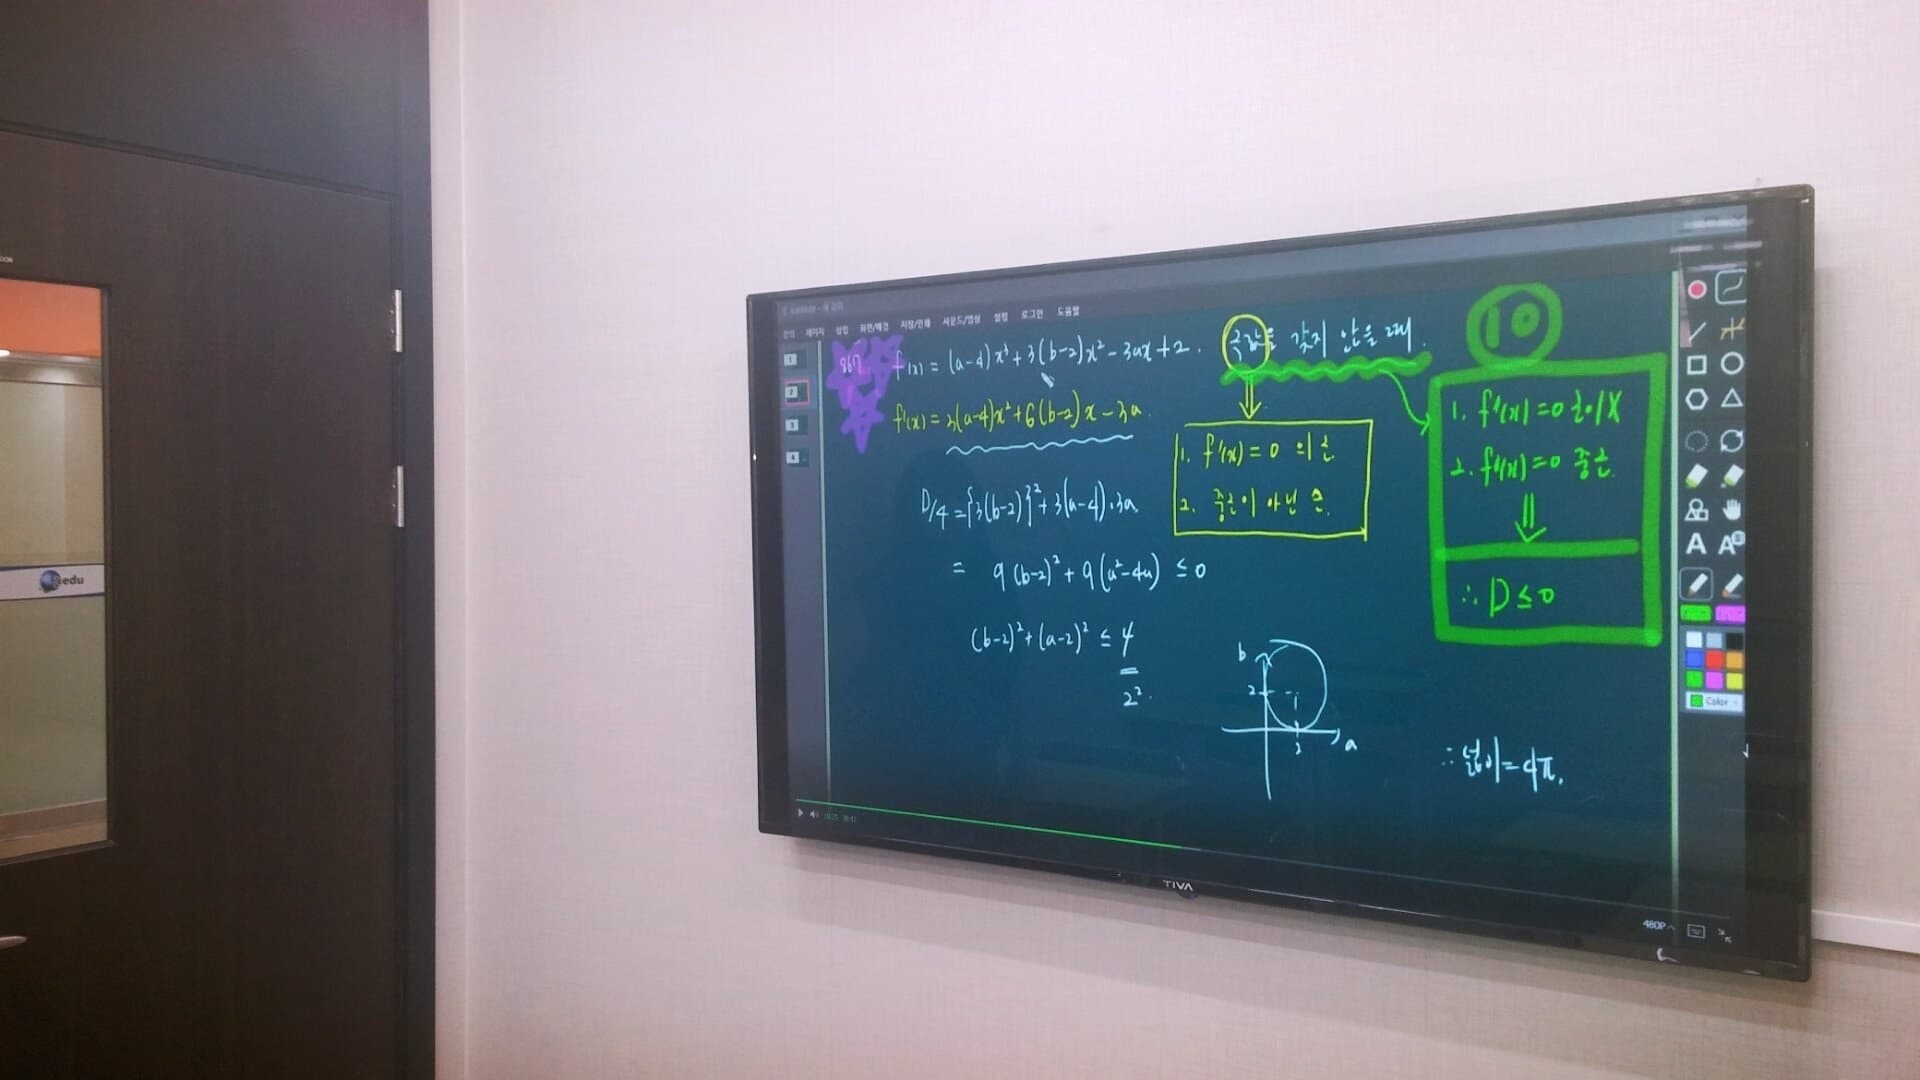 파일 페이지 삽입 화면/배경 저장/인쇄 사운드/영상 설정 로그인 도움말
1
2
3
4
867
f(x) = (a-4)x³+3(b-2)x²-3ax+2.
극값을 갖지 않을 때.
10
f'(x) = 3(a-4)x²+6(b-2)x-3a.
1. f'(x)=0 의 근
2. 중근이 아닌 근.
1. f'(x)=0 근이 X
2. f'(x)=0 중근.
⇓
∴ D≤0
D/4={3(b-2)}²+3(a-4)·3a
= 9(b-2)²+9(a²-4a) ≤0
(b-2)²+(a-2)² ≤ 4
2².
b
2
2
a
∴ 넓이=4π.
A
Color
edu
TIVA
480P